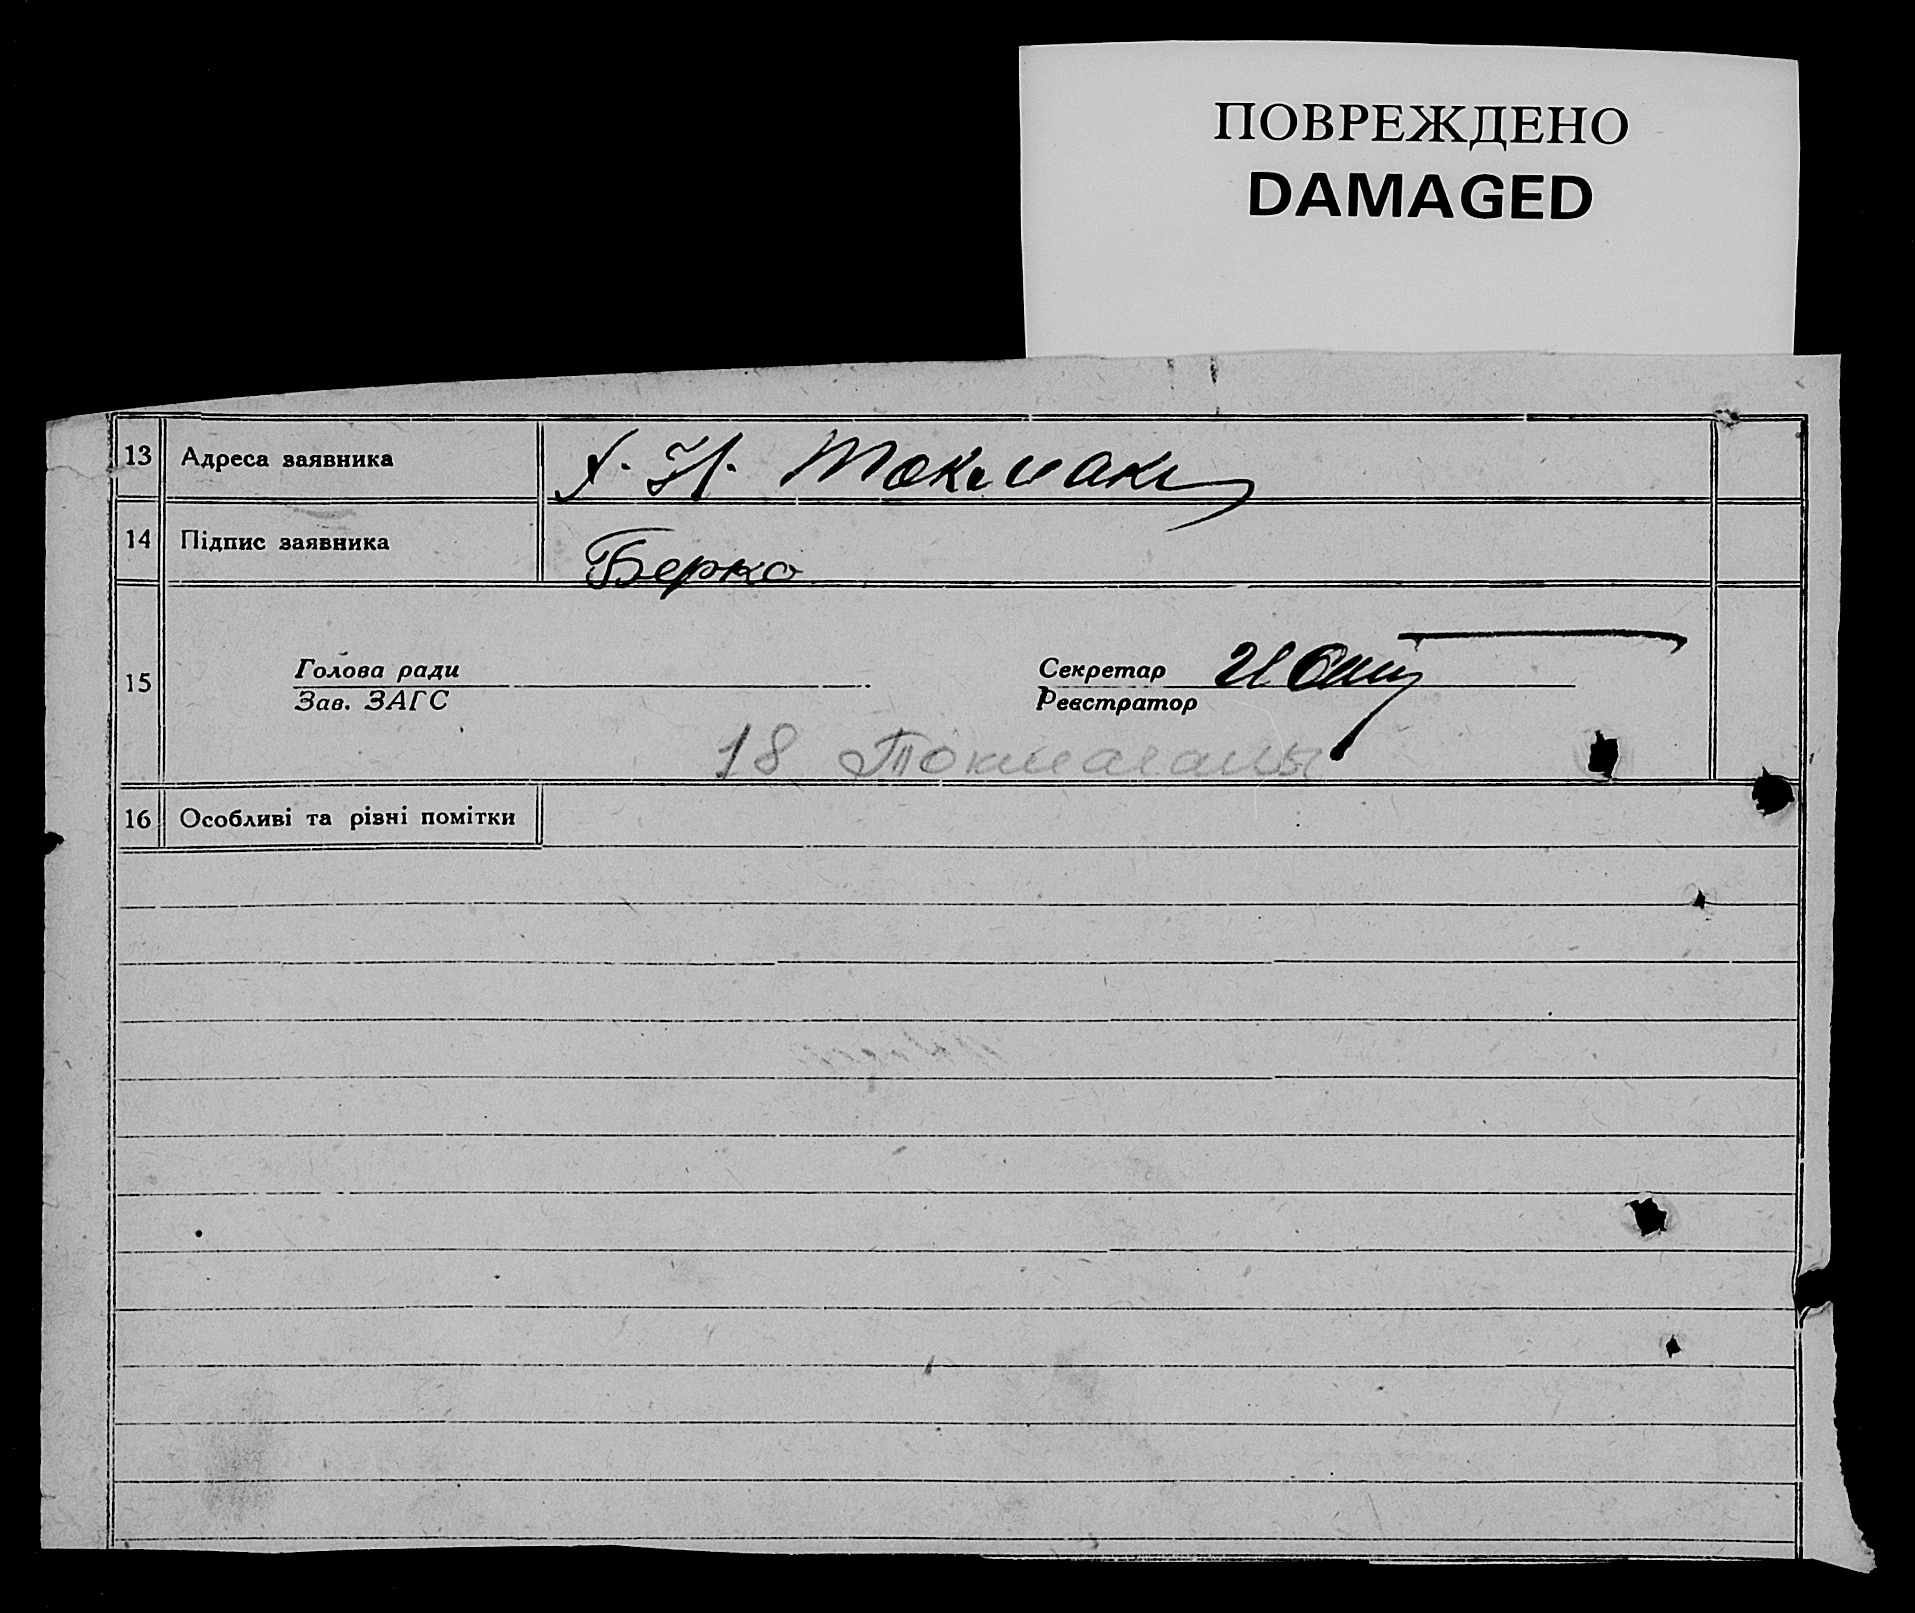 ПОВРЕЖДЕНО
DAMAGED
13 Адреса заявника х. Н. Токмак
14 Підпис заявника Берко
Голова ради Секретар
15
Зав. ЗАГС Реєстратор
18
16 Особливі та різні помітки